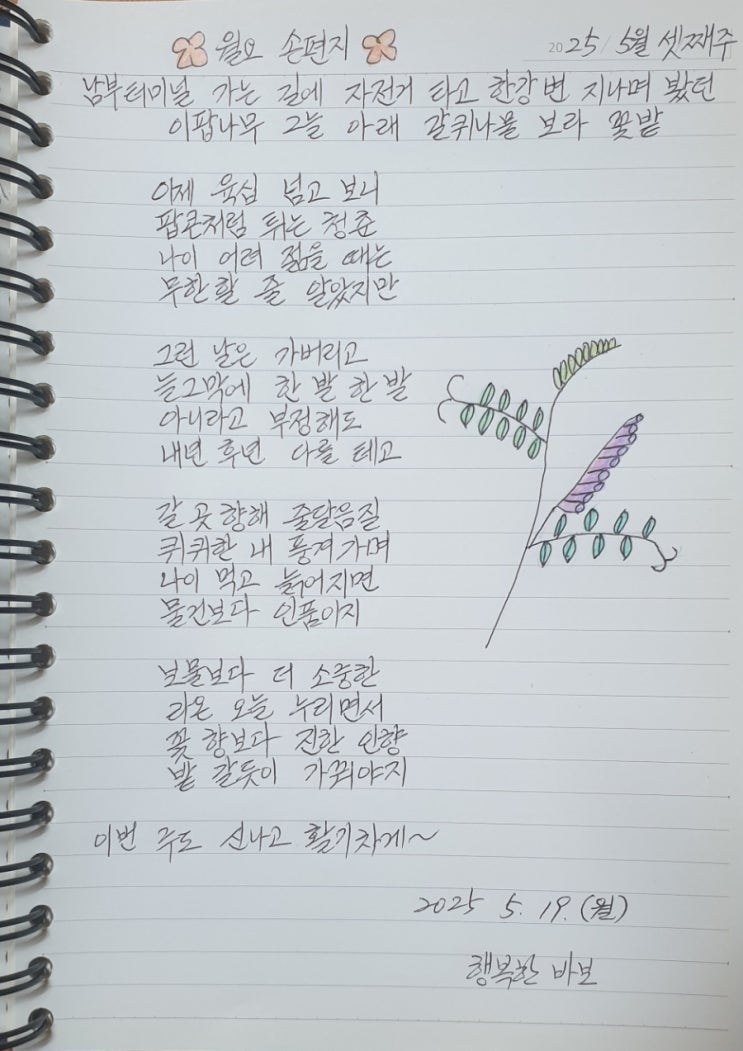 월요 손편지
2025/5월 셋째주
남부터미널 가는 길에 자전거 타고 한강변 지나며 봤던
이팝나무 그늘 아래 갈퀴나물 보라 꽃밭
이제 육십 넘고 보니
팝콘처럼 튀는 청춘
나이 어려 젊을 때는
무한할 줄 알았지만
그런 날은 가버리고
늘그막에 한 발 한 발
아니라고 부정해도
내년 후년 다를 테고
갈 곳 향해 줄달음질
퀴퀴한 내 풍겨 가며
나이 먹고 늙어지면
물건보다 인품이지
보물보다 더 소중한
라온 오늘 누리면서
꽃 향보다 진한 인향
밭 갈듯이 가꿔야지
이번 주도 신나고 활기차게~
2025. 5. 19. (월)
행복한 바보